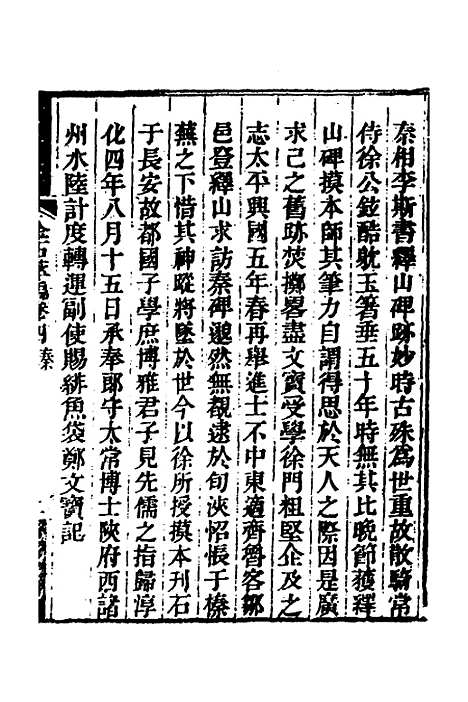 秦相李斯書繹山碑跡妙時古殊為世重故散騎常
侍徐公鉉酷躭玉箸垂五十年時無其比晚節獲繹
山碑摸本師其筆力自謂得思於天人之際因是廣
求己之舊跡焚擲畧盡文寶受學徐門粗堅企及之
志太平興國五年春再舉進士不中東適齊魯客鄒
邑登繹山求訪秦碑邈然無覩逮於旬浹怊悵于榛
蕪之下惜其神蹤將墜於世今以徐所授摸本刊石
于長安故都國子學庶博雅君子見先儒之指歸淳
化四年八月十五日承奉郎守太常博士陝府西諸
州水陸計度轉運副使賜緋魚袋鄭文寶記
金石萃編卷四 秦